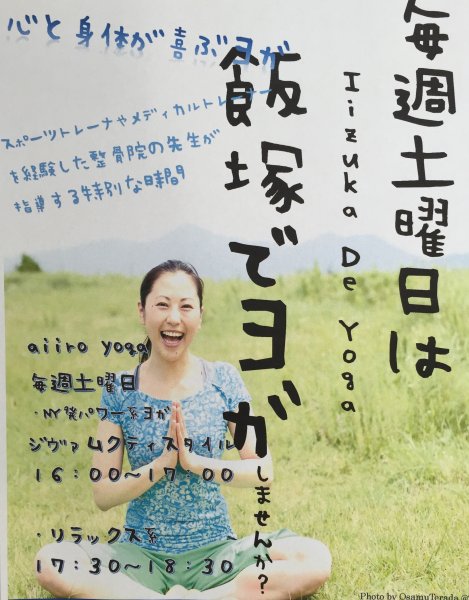 毎週土曜日は
Iizuka De Yoga
飯塚でヨガしませんか？
心と身体が喜ぶヨガ
スポーツトレーナやメディカルトレーナー
を経験した整骨院の先生が
指導する特別な時間
aiiro yoga
毎週土曜日
・NY発パワー系ヨガ
ジヴァムクティスタイル
16:00～17:00
・リラックス系
17:30～18:30
Photo by OsamuTerada @